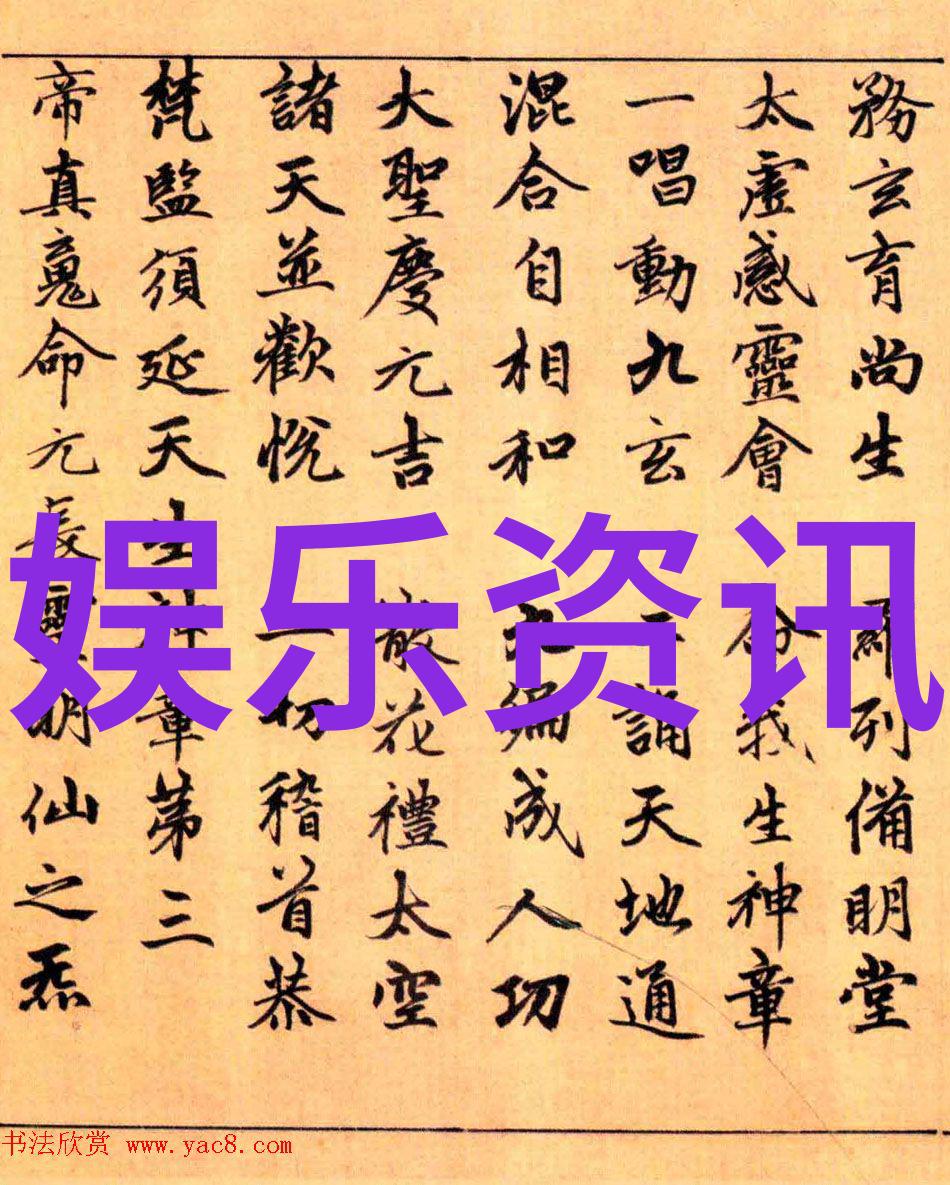 務玄育尚生 列備明堂
太虛感靈會 命我生神章
一唱動九玄 二誦天地通
混合自相和 九編成人功
大聖慶元吉 散花禮太空
諸天並歡悅 一切稽首恭
梵監須延天生神章第三
帝真䰟命元長靈明仙之炁
娱乐资讯
书法欣赏 www.yac8.com